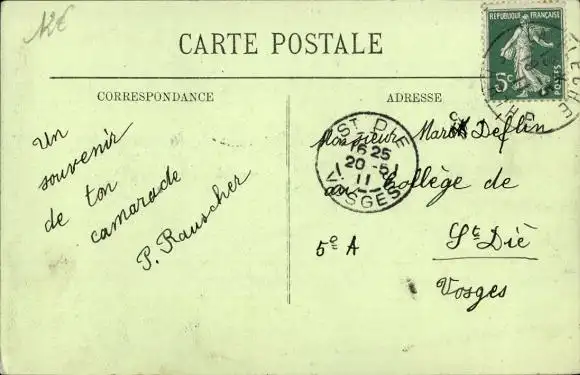 12€
CARTE POSTALE
RÉPUBLIQUE FRANÇAISE
5c
POSTES
CORRESPONDANCE
ADRESSE
Un
souvenir
de ton
camarade
P. Rauscher
ST DIE
16 25
20 -5
11
VOSGES
Monsieur Marc Deflin
au Collège de
5e A
St Dié
Vosges